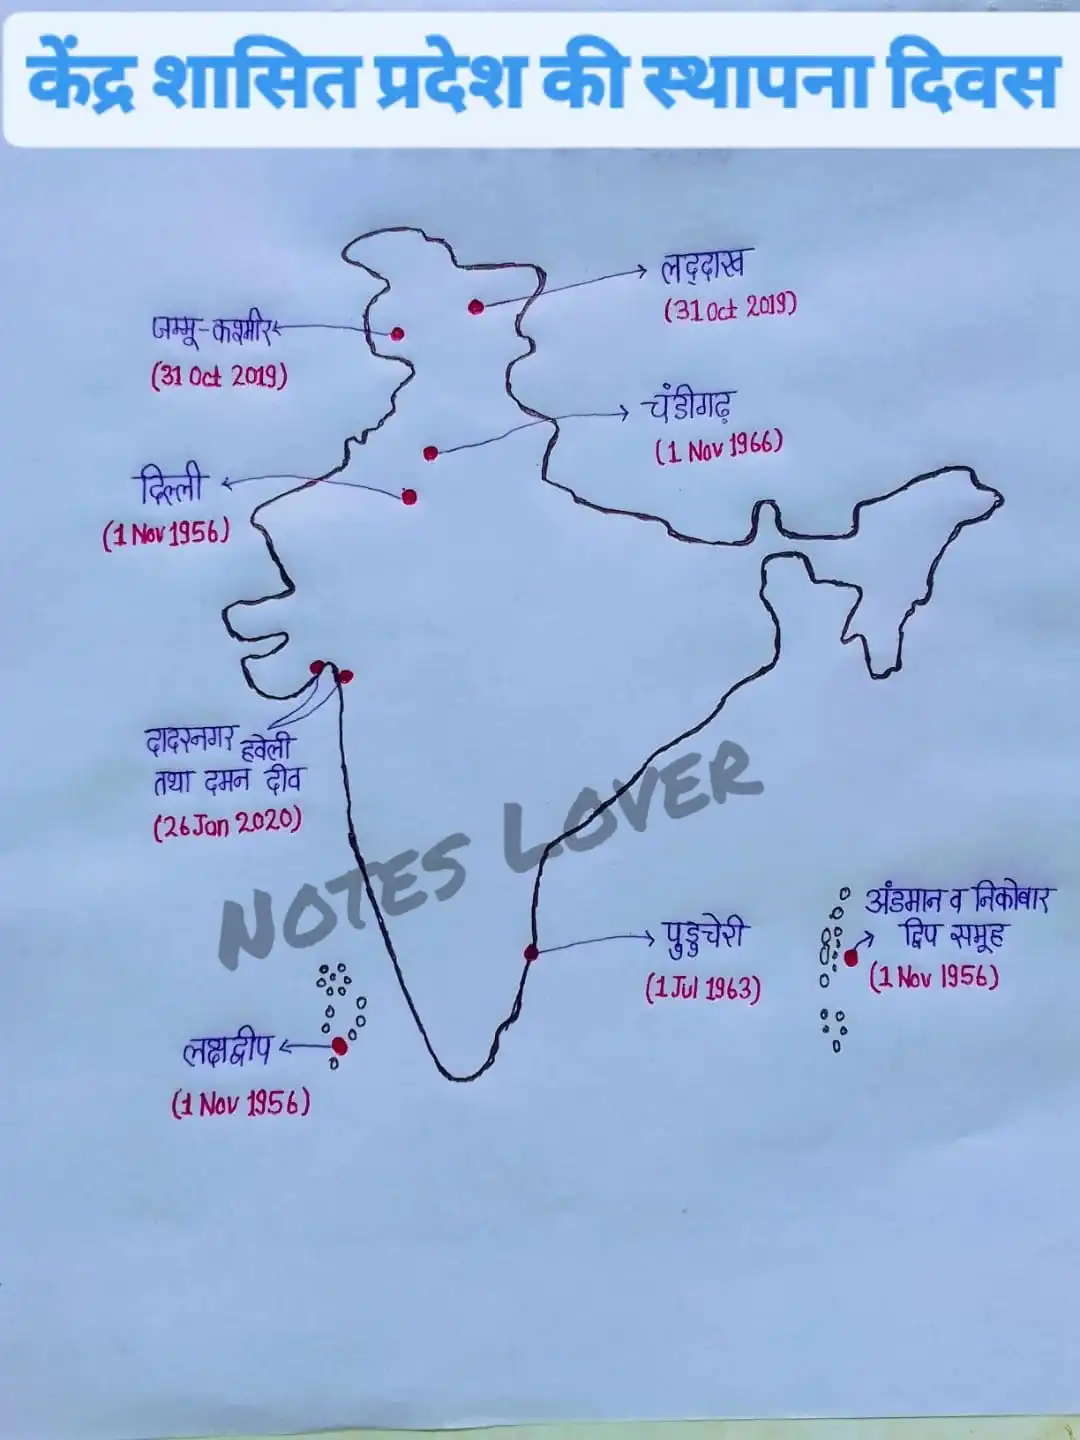 केंद्र शासित प्रदेश की स्थापना दिवस
लद्दाख
(31 Oct 2019)
जम्मू-कश्मीर
(31 Oct 2019)
चंडीगढ़
(1 Nov 1966)
दिल्ली
(1 Nov 1956)
दादरनगर हवेली
तथा दमन दीव
(26 Jan 2020)
NOTES LOVER
अंडमान व निकोबार
द्विप समूह
(1 Nov 1956)
पुडुचेरी
(1 Jul 1963)
लक्षद्वीप
(1 Nov 1956)